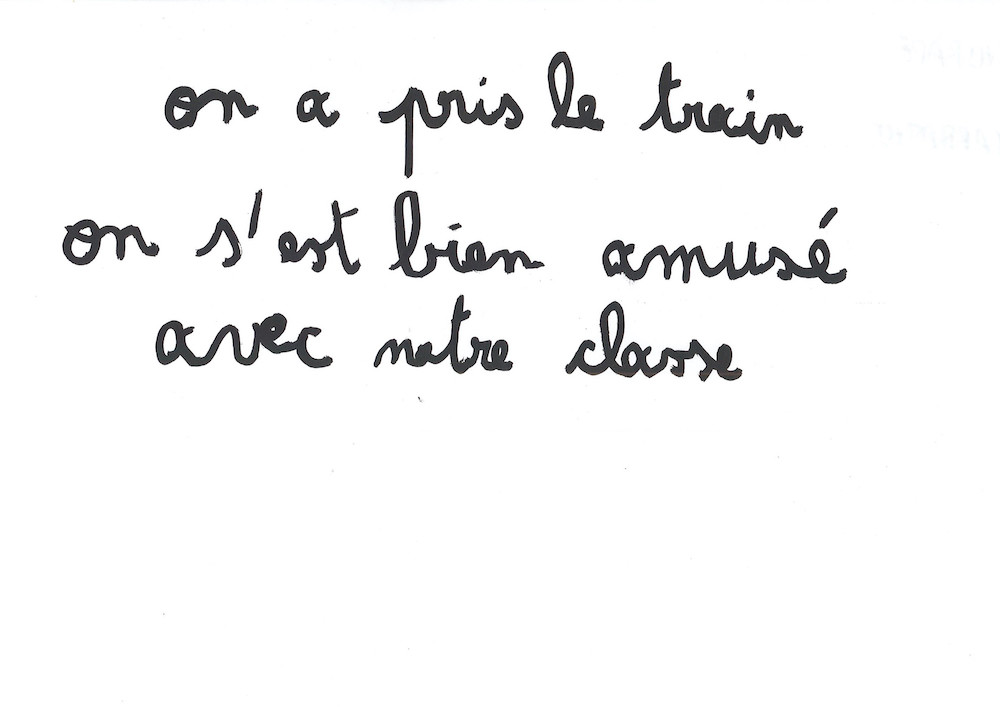 on a pris le train
on s'est bien amusé
avec notre classe